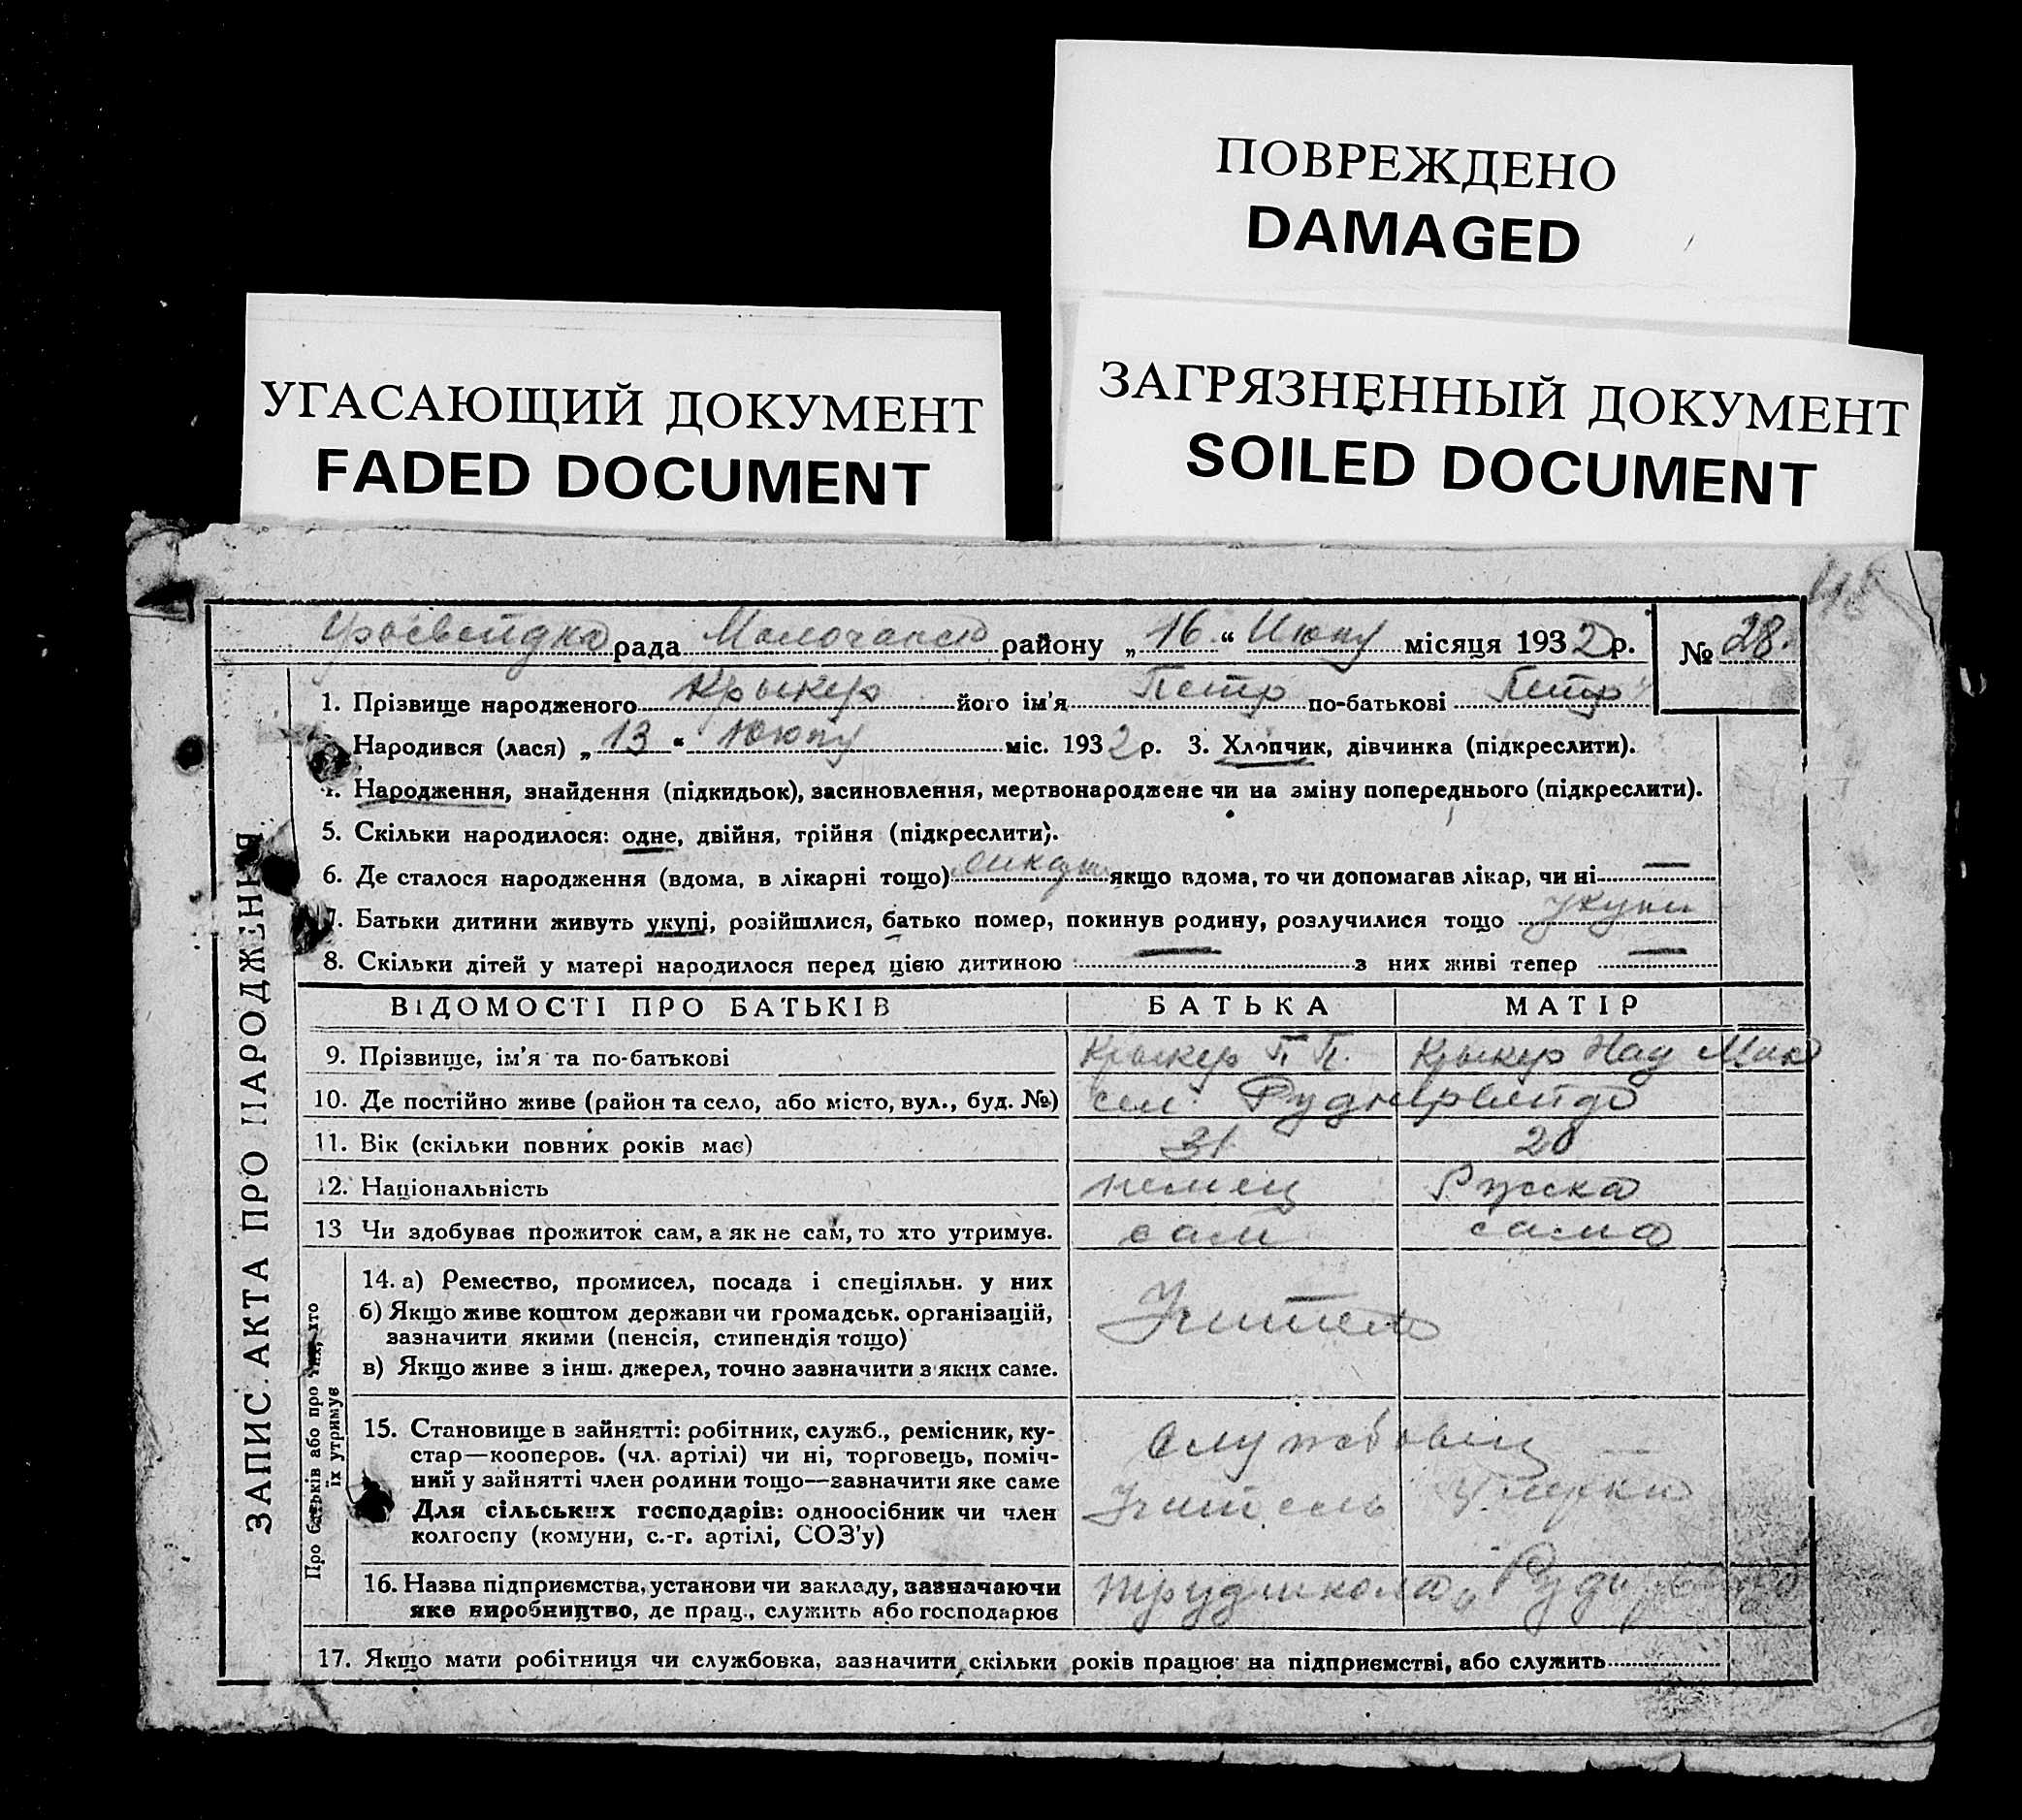 ПОВРЕЖДЕНО
DAMAGED
УГАСАЮЩИЙ ДОКУМЕНТ
FADED DOCUMENT
ЗАГРЯЗНЕННЫЙ ДОКУМЕНТ
SOILED DOCUMENT
рада району „16“ місяця 1932 р. № 28.
1. Прізвище народженого Крыкер його ім'я Петр по-батькові Петр
Народився (лася) „13“ міс. 1932 р. 3. Хлопчик, дівчинка (підкреслити).
4. Народження, знайдення (підкидьок), засиновлення, мертвонароджене чи на зміну попереднього (підкреслити).
5. Скільки народилося: одне, двійня, трійня (підкреслити).
6. Де сталося народження (вдома, в лікарні тощо) якщо вдома, то чи допомагав лікар, чи ні —
7. Батьки дитини живуть укупі, розійшлися, батько помер, покинув родину, розлучилися тощо укупи
8. Скільки дітей у матері народилося перед цією дитиною — з них живі тепер —
ЗАПИС АКТА ПРО НАРОДЖЕННЯ
ВІДОМОСТІ ПРО БАТЬКІВ БАТЬКА МАТІР
9. Прізвище, ім'я та по-батькові Крыкер П. П. Крыкер Над Мик
10. Де постійно живе (район та село, або місто, вул., буд. №) сел.
11. Вік (скільки повних років має) 31 20
12. Національність немец Руска
13 Чи здобуває прожиток сам, а як не сам, то хто утримує. сам сама
Про батьків або про тих, хто їх утримує
14. а) Ремество, промисел, посада і спеціяльн. у них
б) Якщо живе коштом держави чи громадськ. організацій,
зазначити якими (пенсія, стипендія тощо)
Учитель
в) Якщо живе з інш. джерел, точно зазначити з яких саме.
15. Становище в зайнятті: робітник, служб., ремісник, ку-
стар—кооперов. (чл. артілі) чи ні, торговець, поміч-
ний у зайнятті член родини тощо—зазначити яке саме
Для сільських господарів: одноосібник чи член
колгоспу (комуни, с.-г. артілі, СОЗ'у)
Службовец —
Учитель
16. Назва підприємства, установи чи закладу, зазначаючи
яке виробництво, де прац., служить або господарює
трудшкола
17. Якщо мати робітниця чи службовка, зазначити скільки років працює на підприємстві, або служить